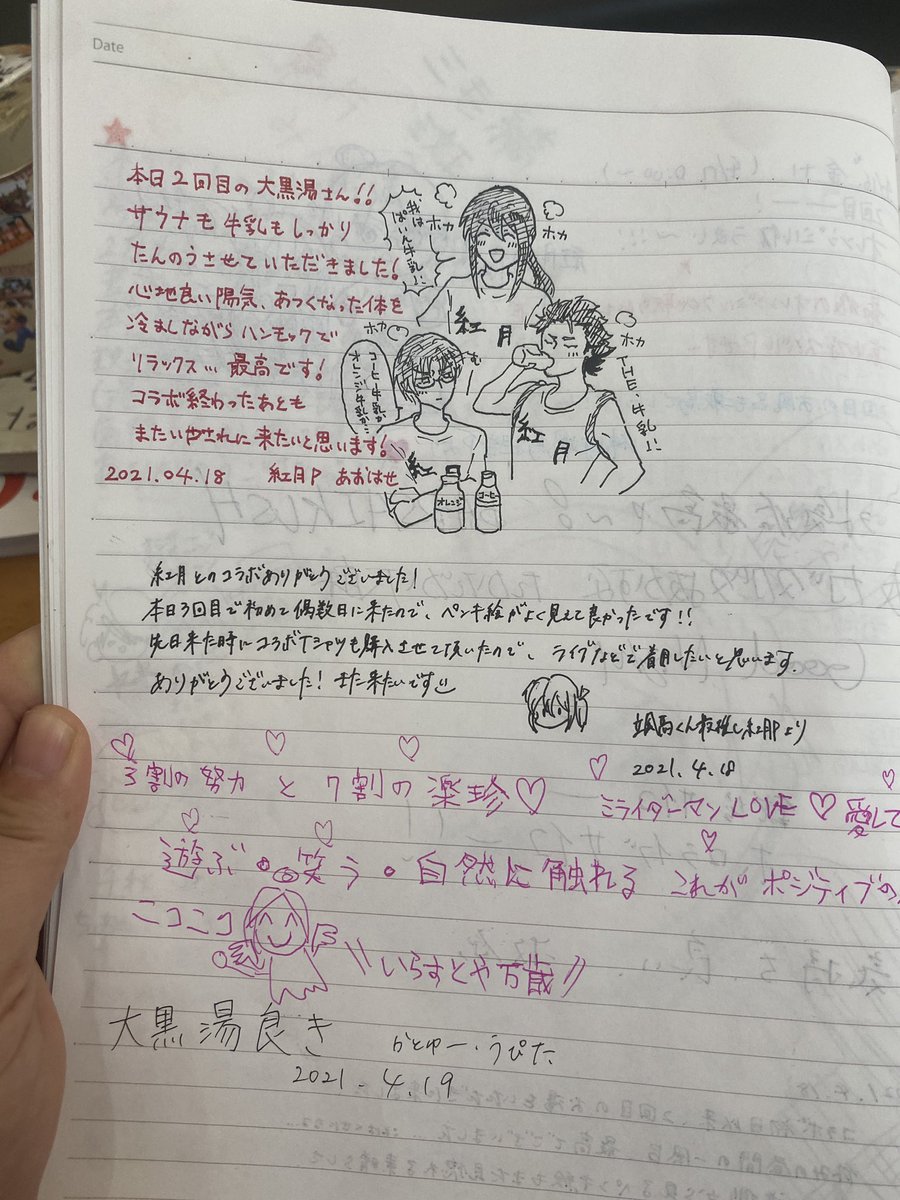 Date
本日2回目の大黒湯さん!!
サウナも牛乳もしっかり
たんのうさせていただきました!
心地良い陽気、あつくなった体を
冷ましながらハンモックで
リラックス…最高です!
コラボ終わったあとも
またいやされに来たいと思います!
2021.04.18 紅月P あおはせ
我は
ぱいん牛乳!!
ホカ
ホカ
紅月
ホカ
コーヒー牛乳か
オレンジ牛乳か…
む
紅
ホカ
THE、牛乳!!
紅月
オレンジ
コーヒー
紅月とのコラボありがとうございました!
本日3回目で初めて偶数日に来たので、ペンキ絵がよく見えて良かったです!!
先日来た時にコラボTシャツも購入させて頂いたので、ライブなどで着用したいと思います.
ありがとうございました! また来たいです
颯馬くん最推し紅月Pより
2021.4.18
3割の努力と7割の楽珍♡ ミライダーマンLOVE♡愛して
遊ぶ・笑う・自然に触れる これがポジティブの
ニコニコ
\\いらすとや万歳//
大黒湯良き
かとゆー・うぴた
2021.4.19